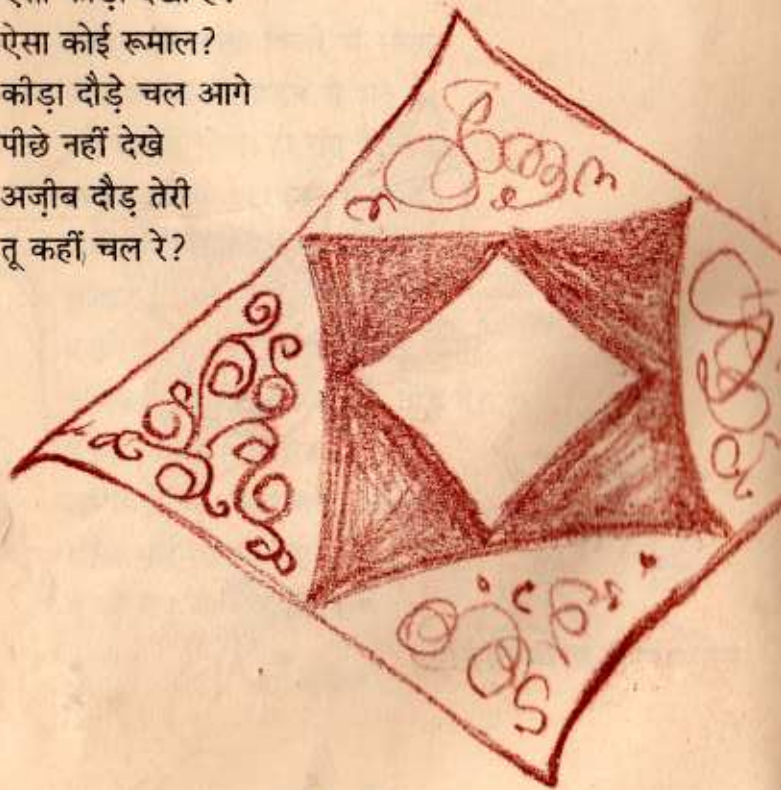 ऐसा कोई रूमाल?
कीड़ा दौड़े चल आगे
पीछे नहीं देखे
अज़ीब दौड़ तेरी
तू कहीं चल रे?